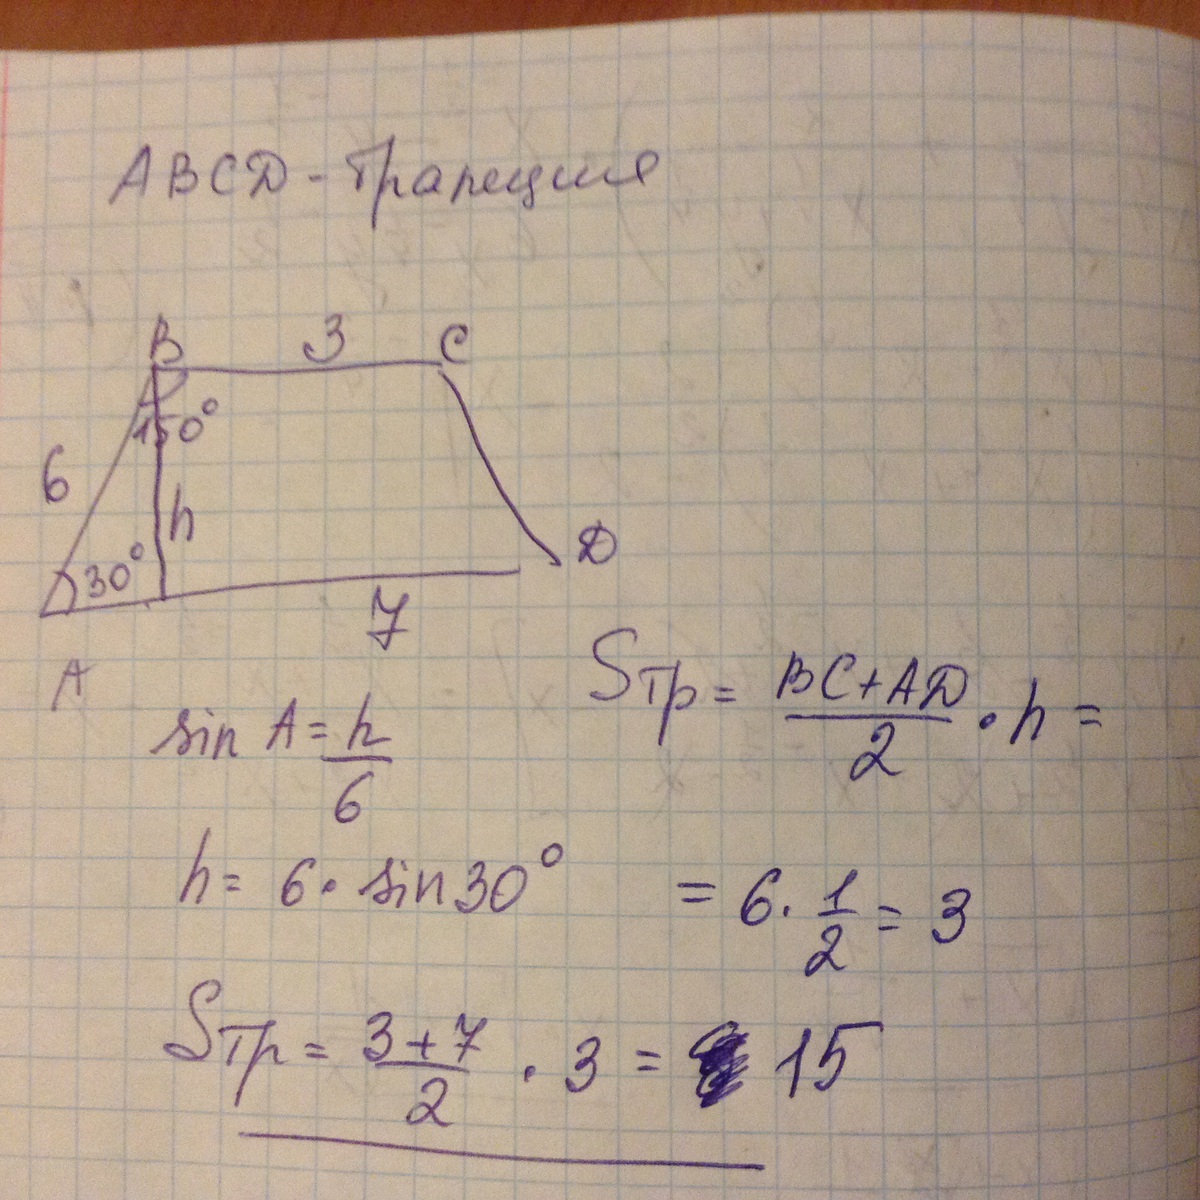 ABCD - трапеция
B 3 C
150°
6
h
30°
D
7
A
Sтр = BC+AD/2 · h =
sin A = h/6
h = 6 · sin30° = 6 · 1/2 = 3
Sтр = 3+7/2 · 3 = 15